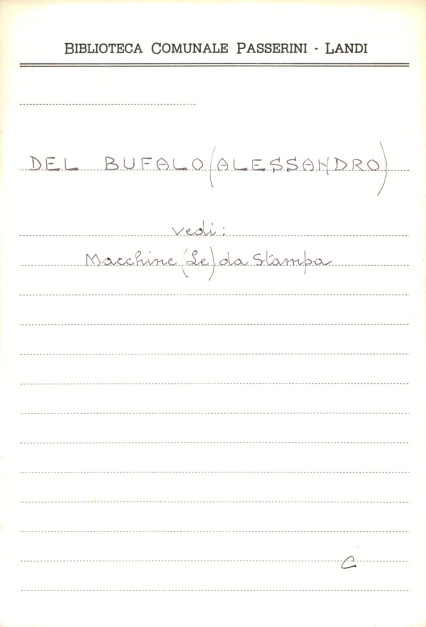 BIBLIOTECA COMUNALE PASSERINI - LANDI
DEL BUFALO (ALESSANDRO)
vedi:
Macchine (Le) da Stampa
C